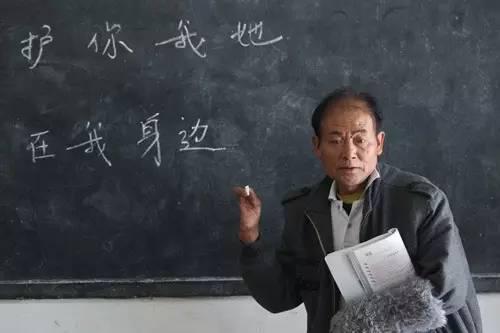 护你我她
在我身边